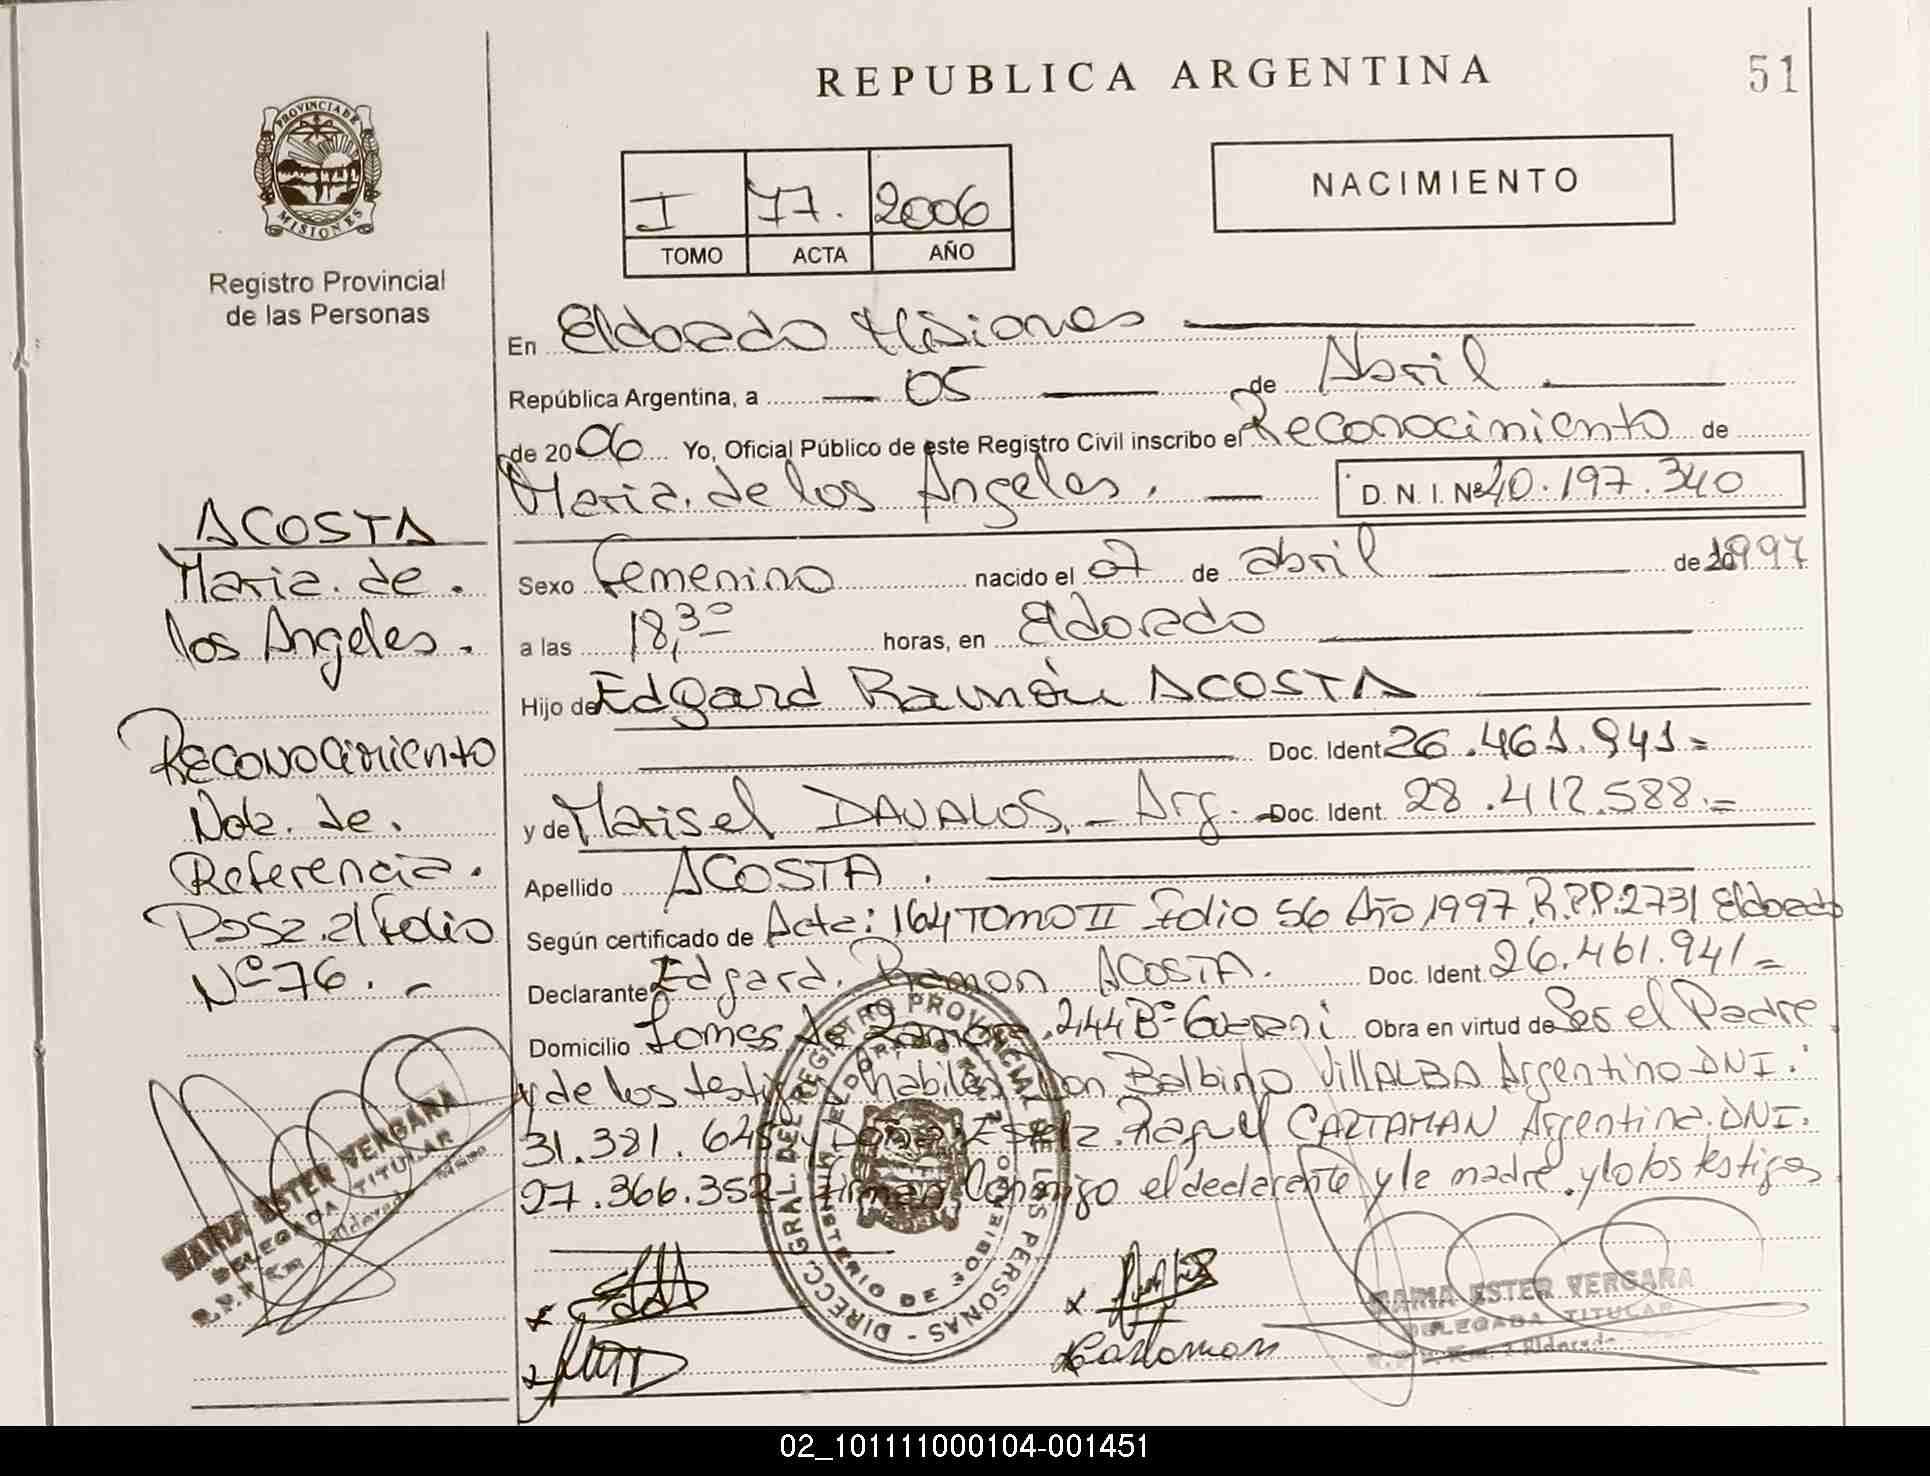 REPUBLICA ARGENTINA
51
PROVINCIA DE
MISIONES
Registro Provincial
de las Personas
I 77. 2006
TOMO ACTA AÑO
NACIMIENTO
En Eldorado Misiones
República Argentina, a 05 de Abril
de 2006 Yo, Oficial Público de este Registro Civil inscribo el Reconocimiento de
Maria de los Angeles. D. N. I. Nº 40.197.340
Sexo Femenino nacido el 07 de abril de 1997
a las 18,30 horas, en Eldorado
Hijo de Edgard Ramón ACOSTA
Doc. Ident. 26.461.941=
y de Marisel DAVALOS. - Arg. - Doc. Ident. 28.412.588.=
Apellido ACOSTA.
Según certificado de Acta: 164 TOMO II Folio 56 Año 1997 R.P.P. 2731 Eldorado
Declarante Edgard Ramon ACOSTA. Doc. Ident. 26.461.941=
Domicilio Lomas de Zamora 244 Bº Obra en virtud de Ser el Padre
y de los testigos habiles Don Balbino VILLALBA Argentino DNI:
31.381.645 y Doña Raquel CARTAMAN Argentina DNI.
27.366.352 firman Conmigo el declarante y la madre y lo los testigos
ACOSTA
Maria de
los Angeles.
Reconocimiento
Nota de
Referencia.
Pasa al folio
Nº 76. -
MARIA ESTER VERGARA
DELEGADA TITULAR
DIRECC. GRAL. DEL REGISTRO PROVINCIAL DE LAS PERSONAS -
MINISTERIO DE GOBIERNO
MARIA ESTER VERGARA
DELEGADA TITULAR
02_101111000104-001451